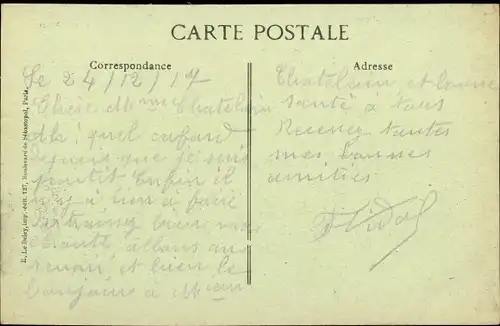 CARTE POSTALE
Correspondance
Adresse
E. Le Deley, imp.-édit. 127, Boulevard de Sébastopol, Paris
Le 24/12/17
Chère Mme Chatelain
Ah! quel cafard
depuis que je suis
Enfin il
n'y a rien à faire
bien mes
allons au
revoir, et bien le
bonjour à M
Chatelain et bonne
santé à tous
Recevez toutes
mes bonnes
amitiés